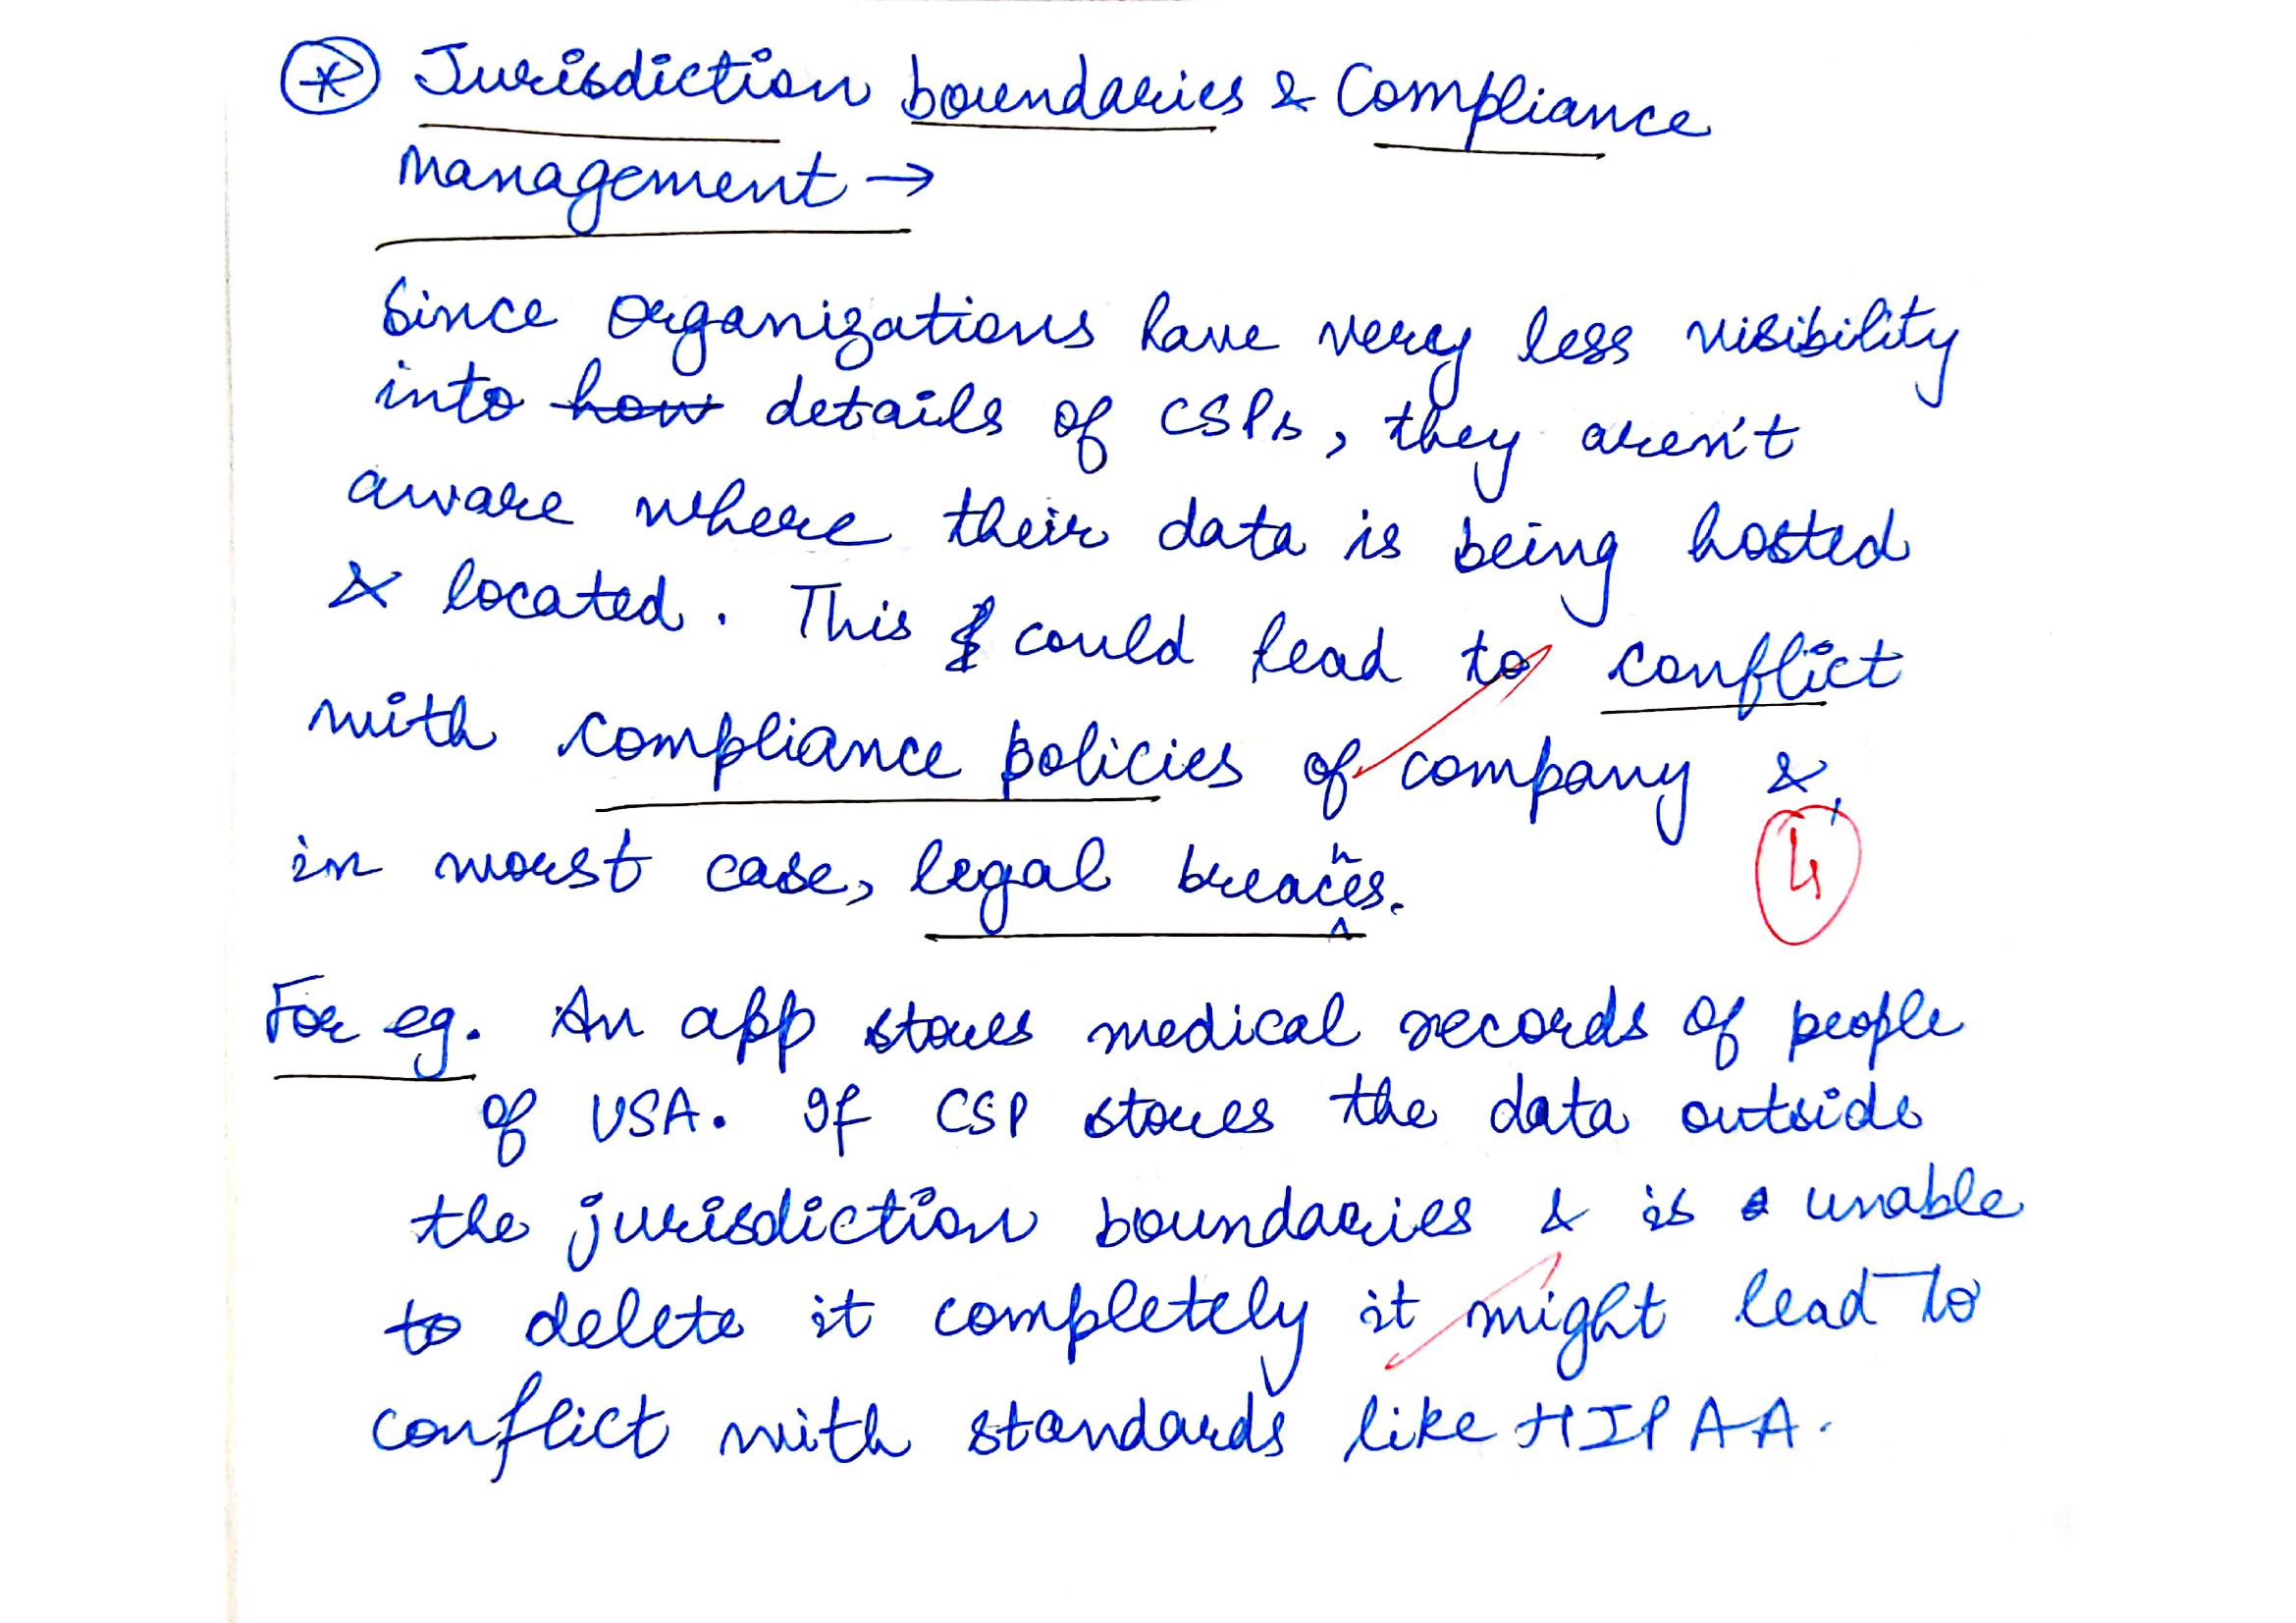 * Jurisdiction boundaries & Compliance
management →
Since organizations have very less visibility
into how details of CSPs, they aren't
aware where their data is being hosted
& located. This could lead to conflict
with compliance policies of company &,
in worst case, legal breaches.
4
For eg. An app stores medical records of people
of USA. If CSP stores the data outside
the jurisdiction boundaries & is unable
to delete it completely it might lead to
conflict with standards like HIPAA.